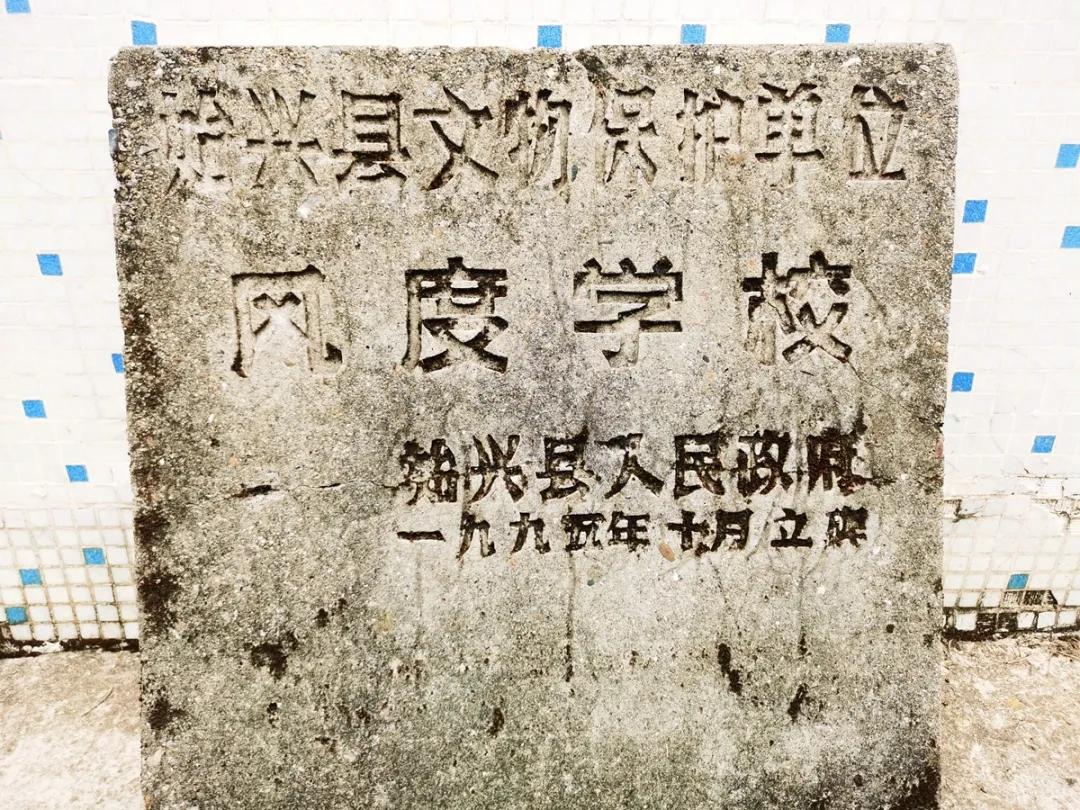 始兴县文物保护单位
风度学校
始兴县人民政府
一九九五年十月立碑